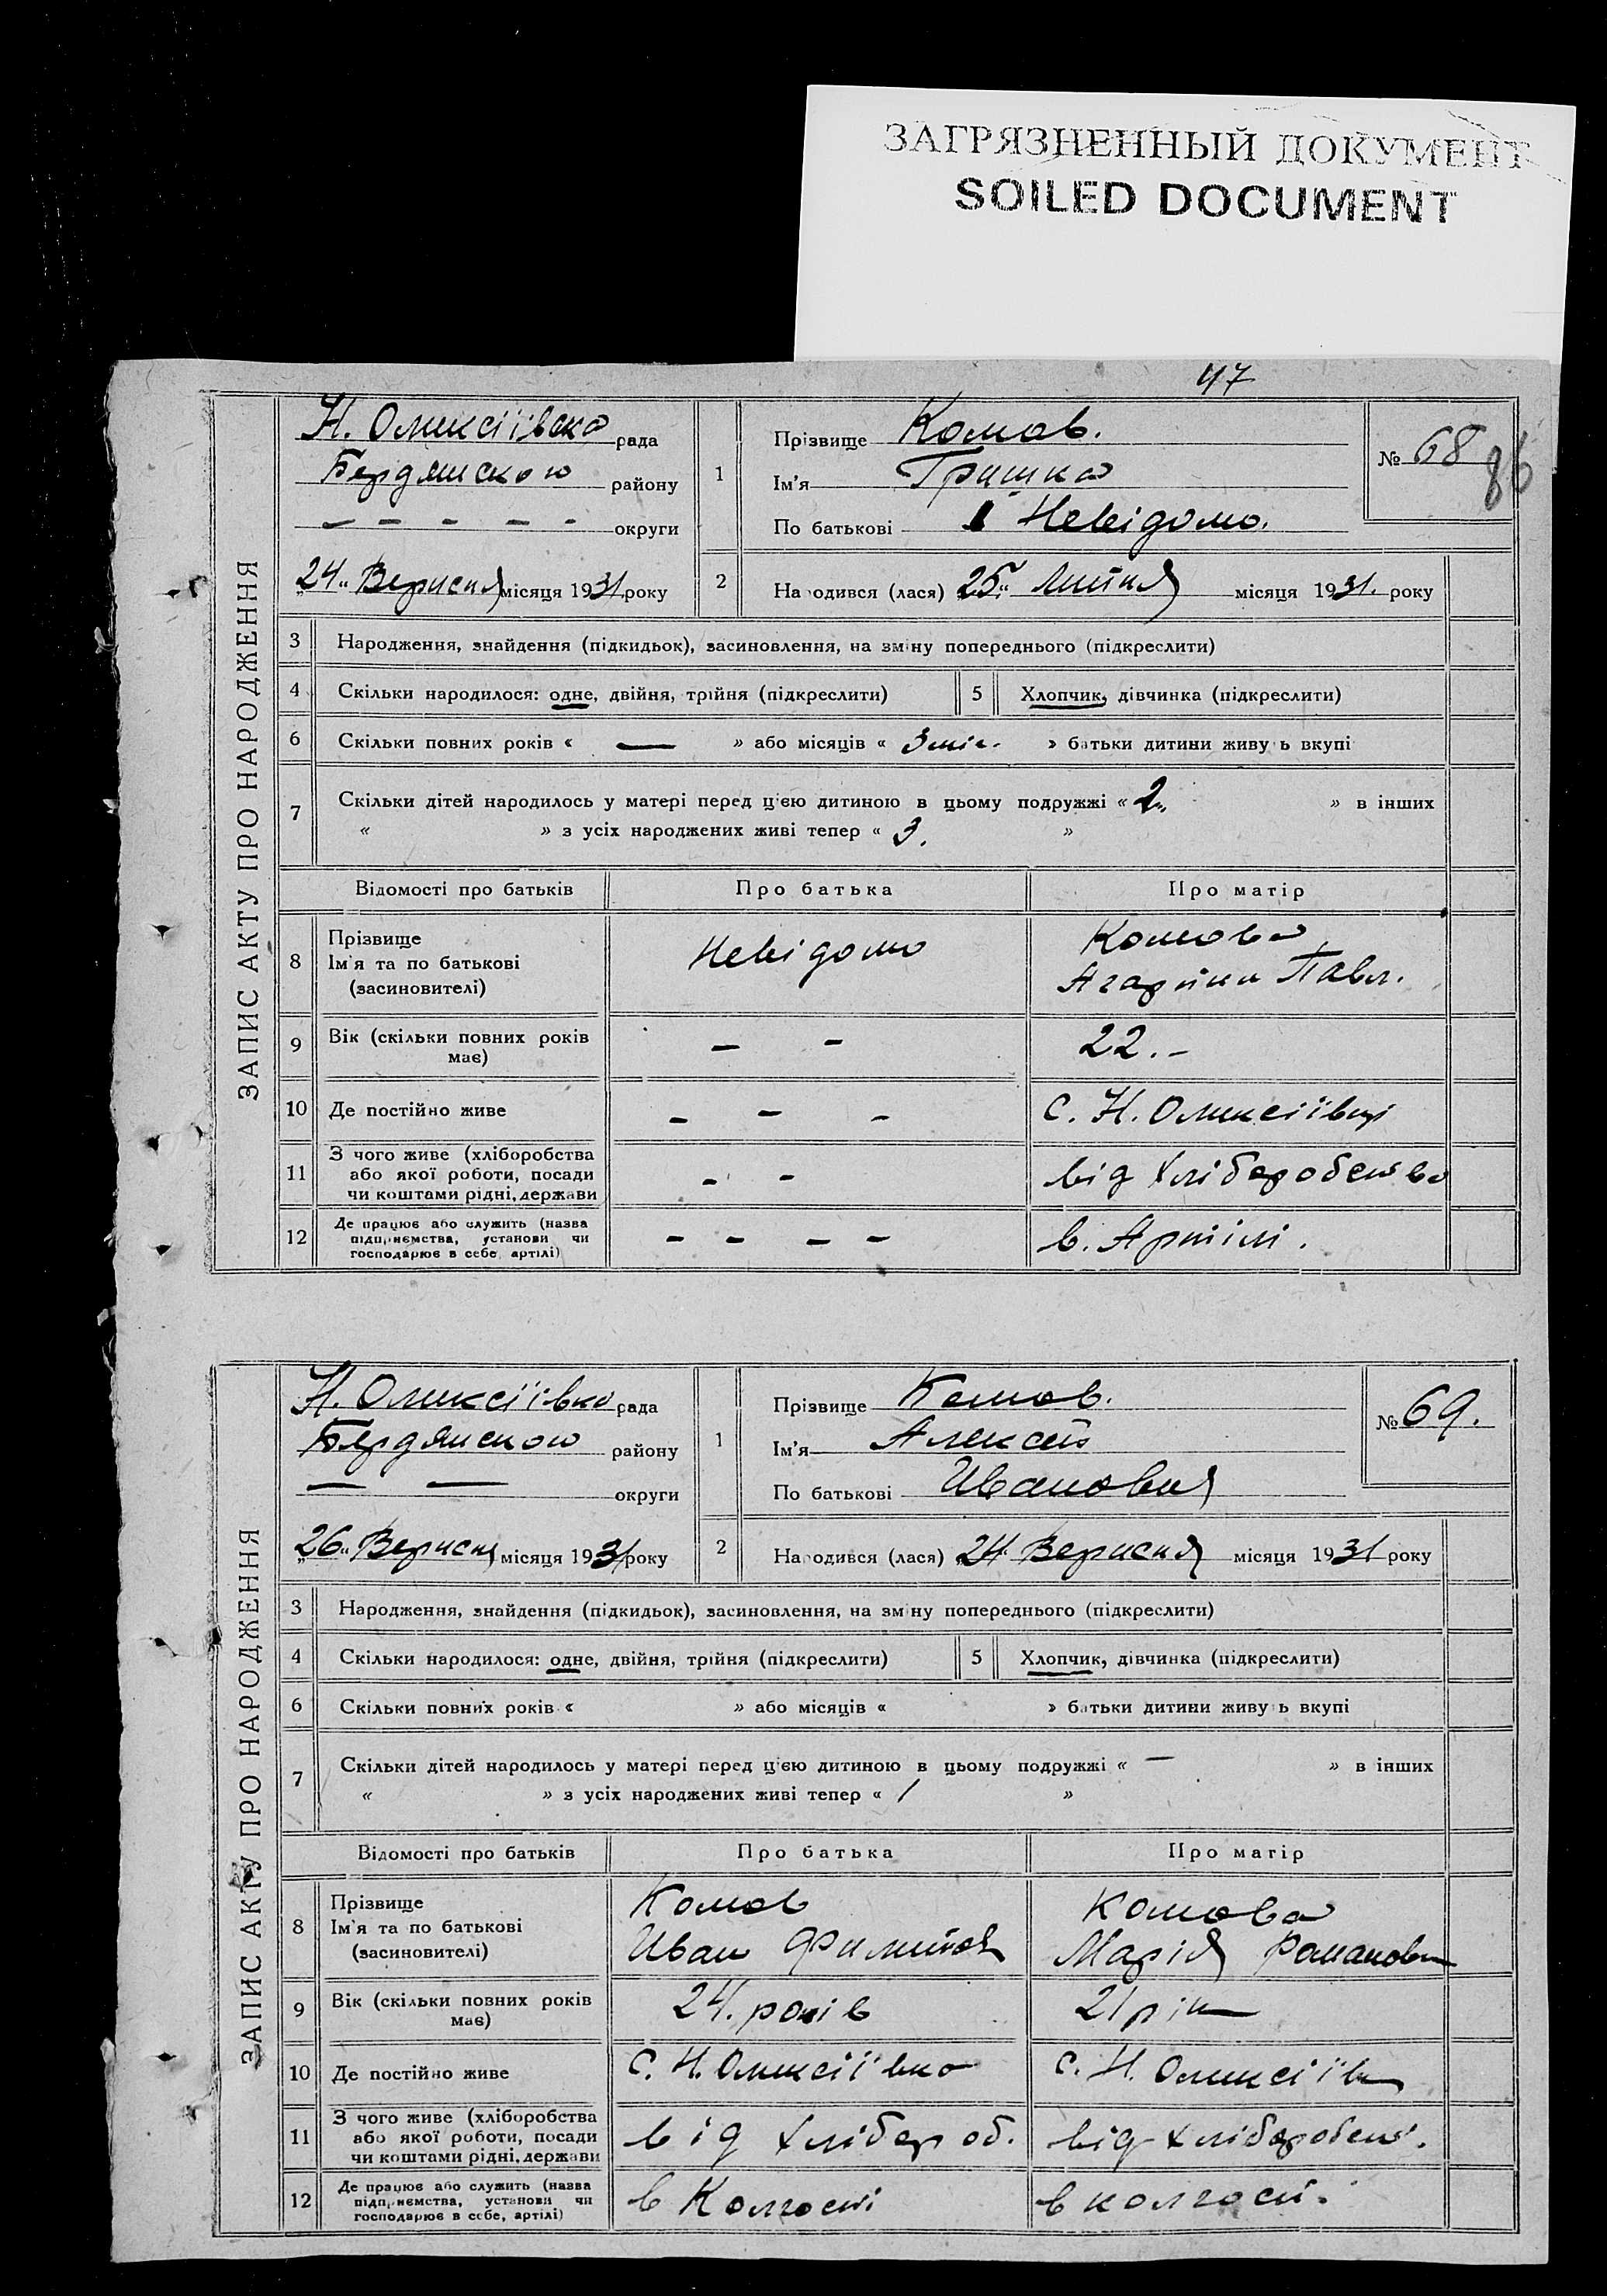 ЗАГРЯЗНЕННЫЙ ДОКУМЕНТ
SOILED DOCUMENT
47
ЗАПИС АКТУ ПРО НАРОДЖЕННЯ
Н. Олексіївска рада
Бердянского району
– – – – – округи
24 Вересня місяця 1931 року
1 Прізвище Комов.
Ім'я Гришка
По батькові Невідомо.
№ 68
86
2 Народився (лася) 25 Липня місяця 1931. року
3 Народження, знайдення (підкидьок), засиновлення, на зміну попереднього (підкреслити)
4 Скільки народилося: одне, двійня, трійня (підкреслити) 5 Хлопчик, дівчинка (підкреслити)
6 Скільки повних років « — » або місяців « 3 міс. » батьки дитини живуть вкупі
7 Скільки дітей народилось у матері перед цією дитиною в цьому подружжі « 2 » в інших
« » з усіх народжених живі тепер « 3. »
Відомості про батьків Про батька Про матір
8 Прізвище
Ім'я та по батькові
(засиновителі)
Невідомо
Комова
Павл.
9 Вік (скільки повних років
має)
– –
22. –
10 Де постійно живе
– – –
с. Н. Олексіївці
11 З чого живе (хліборобства
або якої роботи, посади
чи коштами рідні, держави
– –
від хліборобства
12 Де працює або служить (назва
підприємства, установи чи
господарює в себе, артілі)
– – – –
в. Артілі.
ЗАПИС АКТУ ПРО НАРОДЖЕННЯ
Н. Олексіівка рада
Бердянского району
— — округи
26 Вересня місяця 1931 року
1 Прізвище Комов.
Ім'я Алексей
По батькові Иванович
№ 69.
2 Народився (лася) 24 Вересня місяця 1931 року
3 Народження, знайдення (підкидьок), засиновлення, на зміну попереднього (підкреслити)
4 Скільки народилося: одне, двійня, трійня (підкреслити) 5 Хлопчик, дівчинка (підкреслити)
6 Скільки повних років « » або місяців « » батьки дитини живуть вкупі
7 Скільки дітей народилось у матері перед цією дитиною в цьому подружжі « — » в інших
« » з усіх народжених живі тепер « 1 »
Відомості про батьків Про батька Про матір
8 Прізвище
Ім'я та по батькові
(засиновителі)
Комов
Иван
Комова
Марія Романовн
9 Вік (скільки повних років
має)
24. років
21 рік
10 Де постійно живе
с. Н. Олексіївка
с. Н. Олексіїв
11 З чого живе (хліборобства
або якої роботи, посади
чи коштами рідні, держави
від хлібороб.
від хліборобст.
12 Де працює або служить (назва
підприємства, установи чи
господарює в себе, артілі)
в Колгоспі
в колгосп.